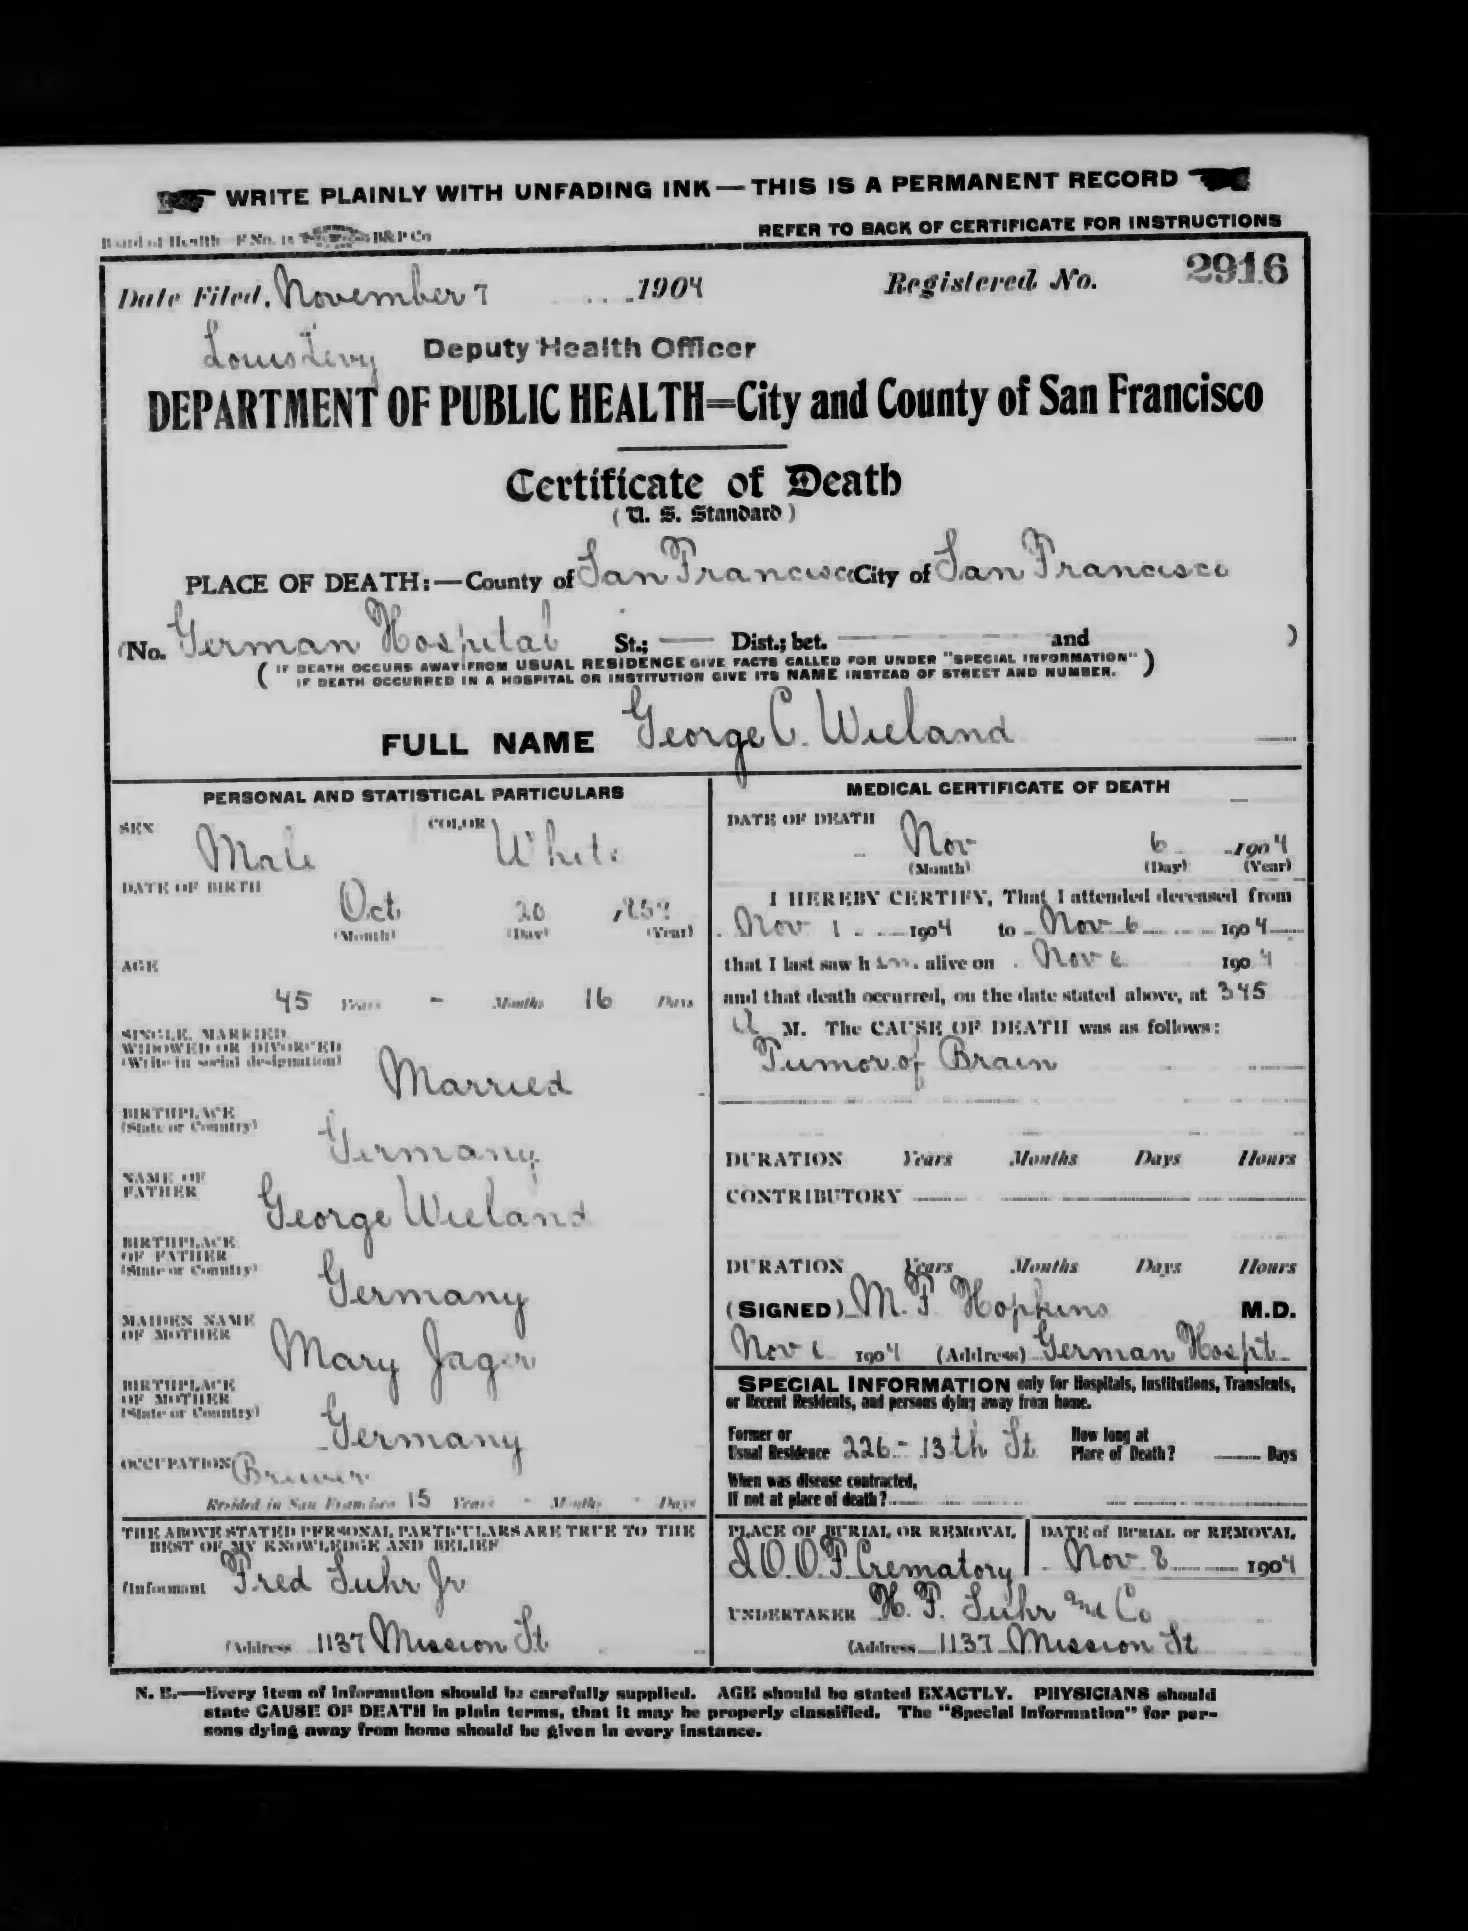 WRITE PLAINLY WITH UNFADING INK — THIS IS A PERMANENT RECORD
Board of Health F No. 15 B&P Co
REFER TO BACK OF CERTIFICATE FOR INSTRUCTIONS
Date Filed, November 7 1904 Registered No. 2916
Louis Levy Deputy Health Officer
DEPARTMENT OF PUBLIC HEALTH=City and County of San Francisco
Certificate of Death
(U. S. Standard)
PLACE OF DEATH:—County of San Francisco City of San Francisco
(No. German Hospital St.; — Dist.; bet. — and )
(IF DEATH OCCURS AWAY FROM USUAL RESIDENCE GIVE FACTS CALLED FOR UNDER "SPECIAL INFORMATION"
IF DEATH OCCURRED IN A HOSPITAL OR INSTITUTION GIVE ITS NAME INSTEAD OF STREET AND NUMBER.)
FULL NAME George C. Wieland
PERSONAL AND STATISTICAL PARTICULARS
SEX Male COLOR White
DATE OF BIRTH
Oct. 20 1859
(Month) (Day) (Year)
AGE
45 Years - Months 16 Days
SINGLE, MARRIED,
WIDOWED OR DIVORCED
(Write in social designation)
Married
BIRTHPLACE
(State or Country)
Germany
NAME OF
FATHER
George Wieland
BIRTHPLACE
OF FATHER
(State or Country)
Germany
MAIDEN NAME
OF MOTHER
Mary Jager
BIRTHPLACE
OF MOTHER
(State or Country)
Germany
OCCUPATION Brewer
Resided in San Francisco 15 Years - Months - Days
THE ABOVE STATED PERSONAL PARTICULARS ARE TRUE TO THE
BEST OF MY KNOWLEDGE AND BELIEF
(Informant Fred Suhr Jr
(Address 1137 Mission St
MEDICAL CERTIFICATE OF DEATH
DATE OF DEATH
Nov 6 1904
(Month) (Day) (Year)
I HEREBY CERTIFY, That I attended deceased from
Nov 1 1904 to Nov 6 1904
that I last saw him alive on Nov 6 1904
and that death occurred, on the date stated above, at 345
A M. The CAUSE OF DEATH was as follows:
Tumor of Brain
DURATION Years Months Days Hours
CONTRIBUTORY
DURATION Years Months Days Hours
(SIGNED) M. F. Hopkins M.D.
Nov 6 1904 (Address) German Hospt.
SPECIAL INFORMATION only for Hospitals, Institutions, Transients,
or Recent Residents, and persons dying away from home.
Former or
Usual Residence 226 - 13th St.
How long at
Place of Death? Days
When was disease contracted,
If not at place of death?
PLACE OF BURIAL OR REMOVAL
I.O.O.F. Crematory
DATE of BURIAL or REMOVAL
Nov 8 1904
UNDERTAKER H. F. Suhr and Co
(Address 1137 Mission St
N. B.—Every item of information should be carefully supplied. AGE should be stated EXACTLY. PHYSICIANS should
state CAUSE OF DEATH in plain terms, that it may be properly classified. The "Special Information" for per-
sons dying away from home should be given in every instance.